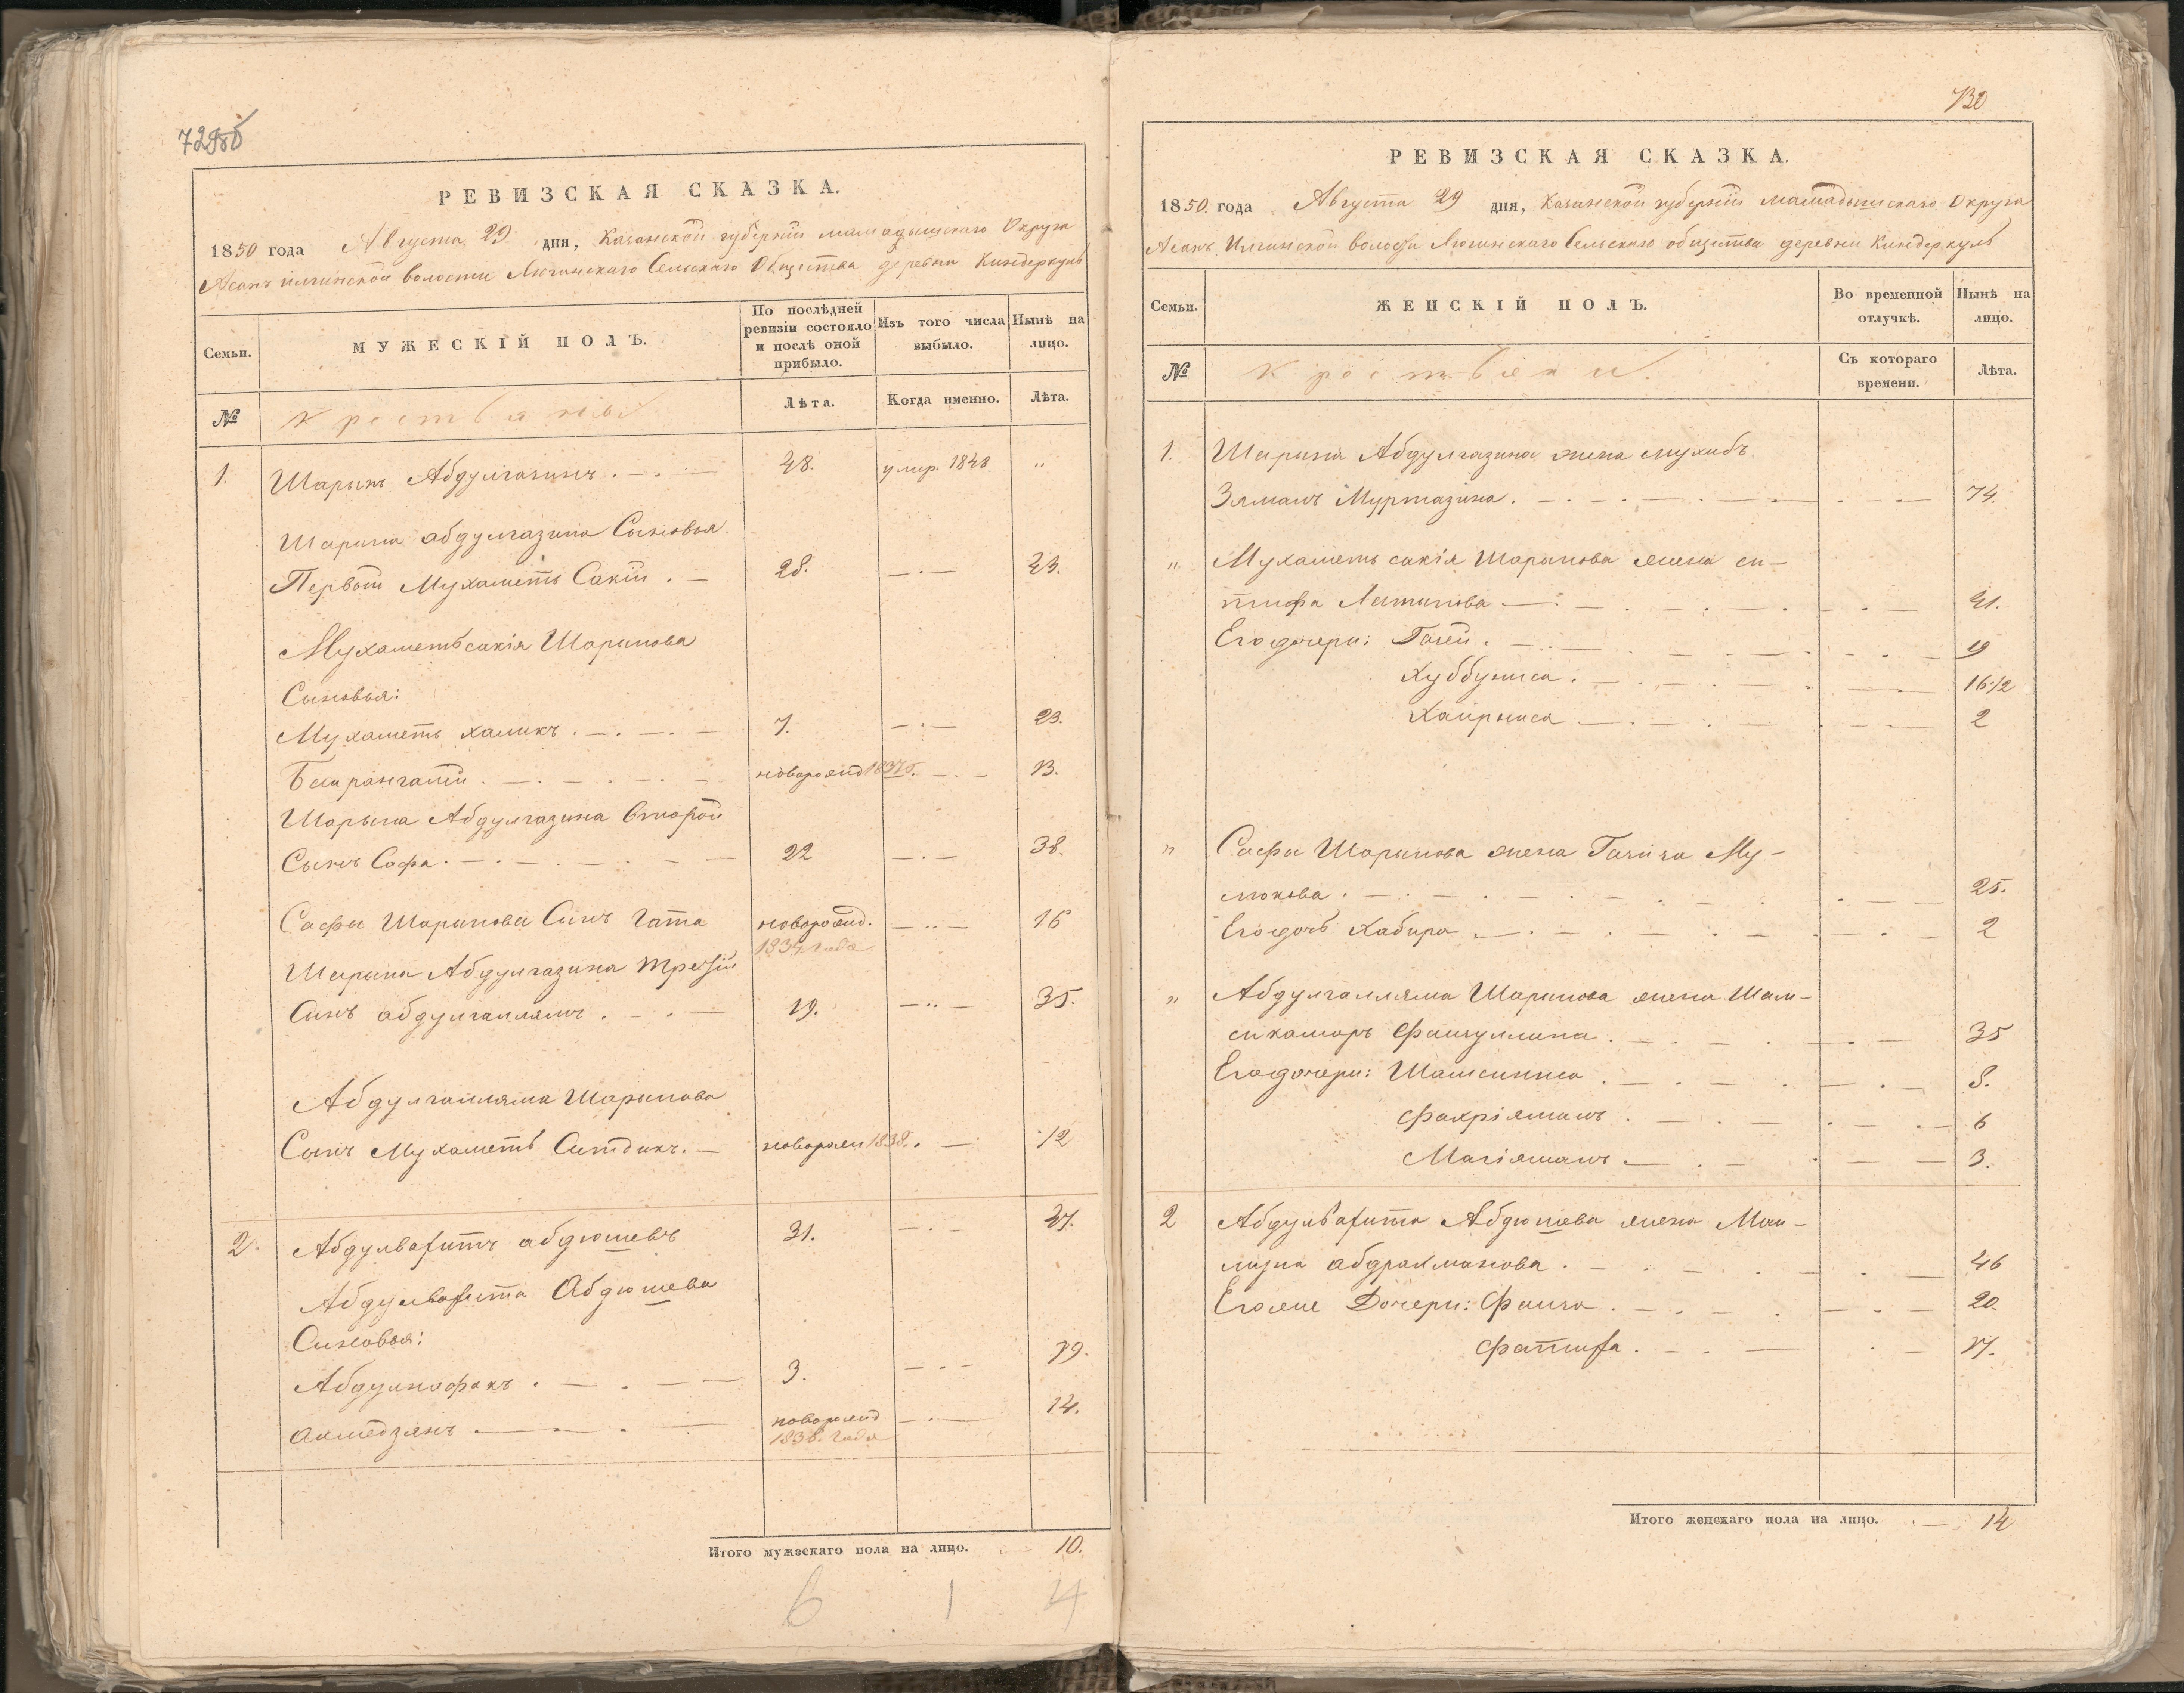 729об
РЕВИЗСКАЯ СКАЗКА.
1850 года Августа 29 дня, Казанской губернии Мамадышскаго Округа
Асанъ Илгинской волости Лючинскаго Сельскаго Общества деревни Киндеркуль
Семьи.
МУЖЕСКІЙ ПОЛЪ.
По послѣдней ревизіи состояло и послѣ оной прибыло.
Изъ того числа выбыло.
Нынѣ на лицо.
№
Крестьяны
Лѣта.
Когда именно.
Лѣта.
1. Шарыпъ Абдулгазинъ . 48. умер. 1848 "
Шарипа абдулгазина Сыновья
Первый Мухаметь Сакій . 28. 43.
Мухаметьсакія Шарипова
Сыновья:
Мухаметь халикъ . 7. 23.
новорожд 13.
Шарыпа Абдулгазина Второй
Сынъ Сафа . 22 38.
Сафы Шарипова Сынъ Гата новорожд. 1834 года 16
Шарипа Абдулгазина третій
Сынъ абдулгаллямъ . 19. 35.
Абдулгалляма Шарыпова
Сынъ Мухаметь Ситдикъ . новорож 1838. 12
2. Абдулвагитъ абдюшевъ 31. 47.
Абдулвагита Абдюшева
Сыновья:
Абдулнафакъ . 3. 19.
Ахмедзянъ новорожд 1836 года 14.
Итого мужескаго пола на лицо. 10.
6 1 4
730
РЕВИЗСКАЯ СКАЗКА.
1850 года Августа 29 дня, Казанской губерніи Мамадышскаго Округа
Асанъ Илгинской волости Лючинскаго Сельскаго общества деревни Киндеркуль
Семьи.
ЖЕНСКІЙ ПОЛЪ.
Во временной отлучкѣ.
Нынѣ на лицо.
№
Крестьяни
Съ котораго времени.
Лѣта.
1. Шарипа Абдулгазина жена Мухибъ
Зямалъ Муртазина . 74.
" Мухаметь сакія Шарыпова жена си-
тифа Латыпова 41.
Его дочери: 19
Хуббуниса . 16 1/2
Хайрниса 2
" Сафы Шарипова жена Газиза Му-
люкова . 25.
Его дочь Хабира . 2
" Абдулгалляма Шарипова жена Шам-
сикамаръ Файзуллина . 35
Его дочери: Шамсиниса . 8.
Фахріямалъ . 6
Магіямалъ 3.
2 Абдулвагита Абдюшева жена Май-
абдрахманова . 46
Его же Дочери: Фаиза . 20.
Фатифа . 17.
Итого женскаго пола на лицо. 14